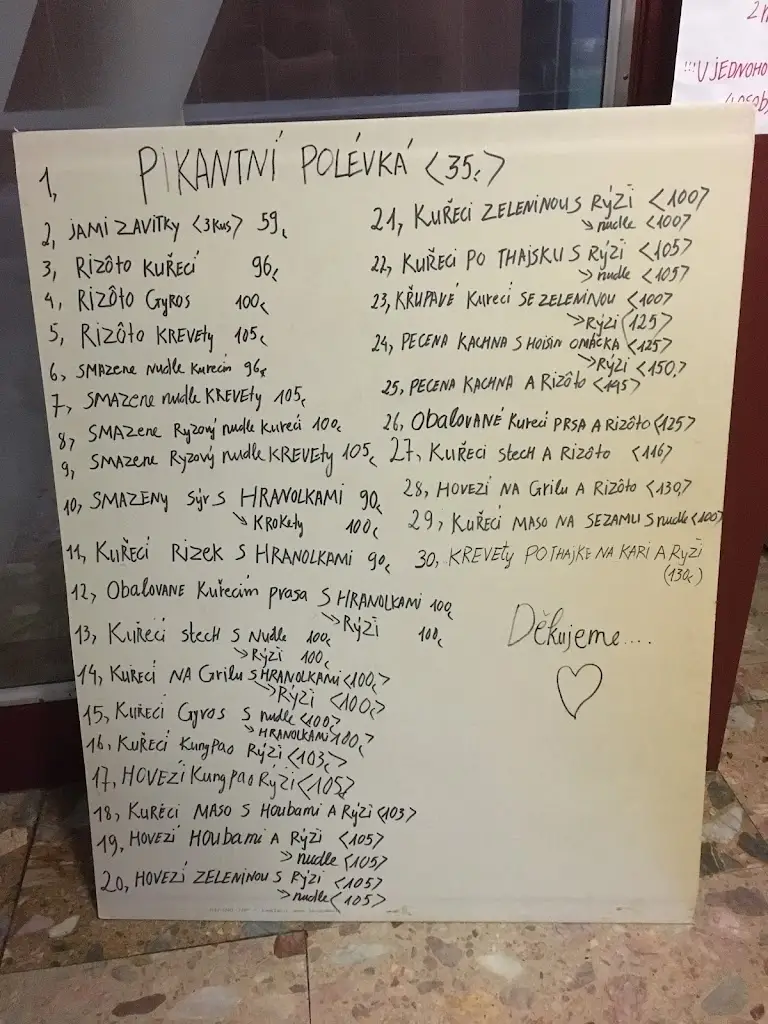 1, PIKANTNÍ POLÉVKÁ <35,>
2, JAMI ZAVITKY <3Kus> 59,
3, Rizôto KUŘECÍ 96,
4, Rizôto Gyros 100,
5, Rizôto KREVETY 105,
6, SMAZENE Nudle Kurecim 96,
7, SMAZENE nudle KREVETY 105,
8, SMAZENE Ryzový nudle Kureci 100,
9, SMAZENE Ryzový nudle KREVETY 105,
10, SMAZENY Sýr S HRANOLKAMI 90,
→ KROKETY 100,
11, KUŘECÍ Rizek S HRANOLKAMI 90,
12, Obalovane Kuřecím prasa S HRANOLKAMI 100,
→ Rýži 100,
13, Kuřecí stech S Nudle 100,
→ Rýži 100,
14, KUŘECÍ NA Grilu S HRANOLKAMI <100,>
→ Rýži <100,>
15, Kuřecí Gyros S nudle <100,>
→ HRANOLKAMI 100,>
16, KUŘECÍ KungPao Rýži <103,>
17, HOVEZÍ KungpaoRýži <105>
18, KUŘECI MASO S Houbami A Rýži <103>
19, HOVEZÍ Houbami A Rýži <105>
→ nudle <105>
20, HOVEZÍ ZELENINOU S Rýži <105>
→ nudle <105>
21, KUŘECI ZELENINOU S Rýži <100>
→ nudle <100>
22, KUŘECI PO THAJSKU S Rýži <105>
→ nudle <105>
23, KŘUPAVÉ Kurecí SE ZELENINOU <100>
→ Rýži (125>
24, PECENA KACHNA S HOISIN OMÁČKA <125>
→ Rýži <150,>
25, PECENA KACHNA A Rizôto <195>
26, Obalované Kurecí PRSA A Rizôto <125>
27, KUŘECI stech A Rizôto <116>
28, HOVEZÍ NA Grilu A Rizôto <130,>
29, KUŘECÍ MASO NA SEZAMU S nudle <100>
30, KREVETY POTHAJKE NA KARI A Rýži
(130,)
Děkujeme....
!!!U JEDNOHO